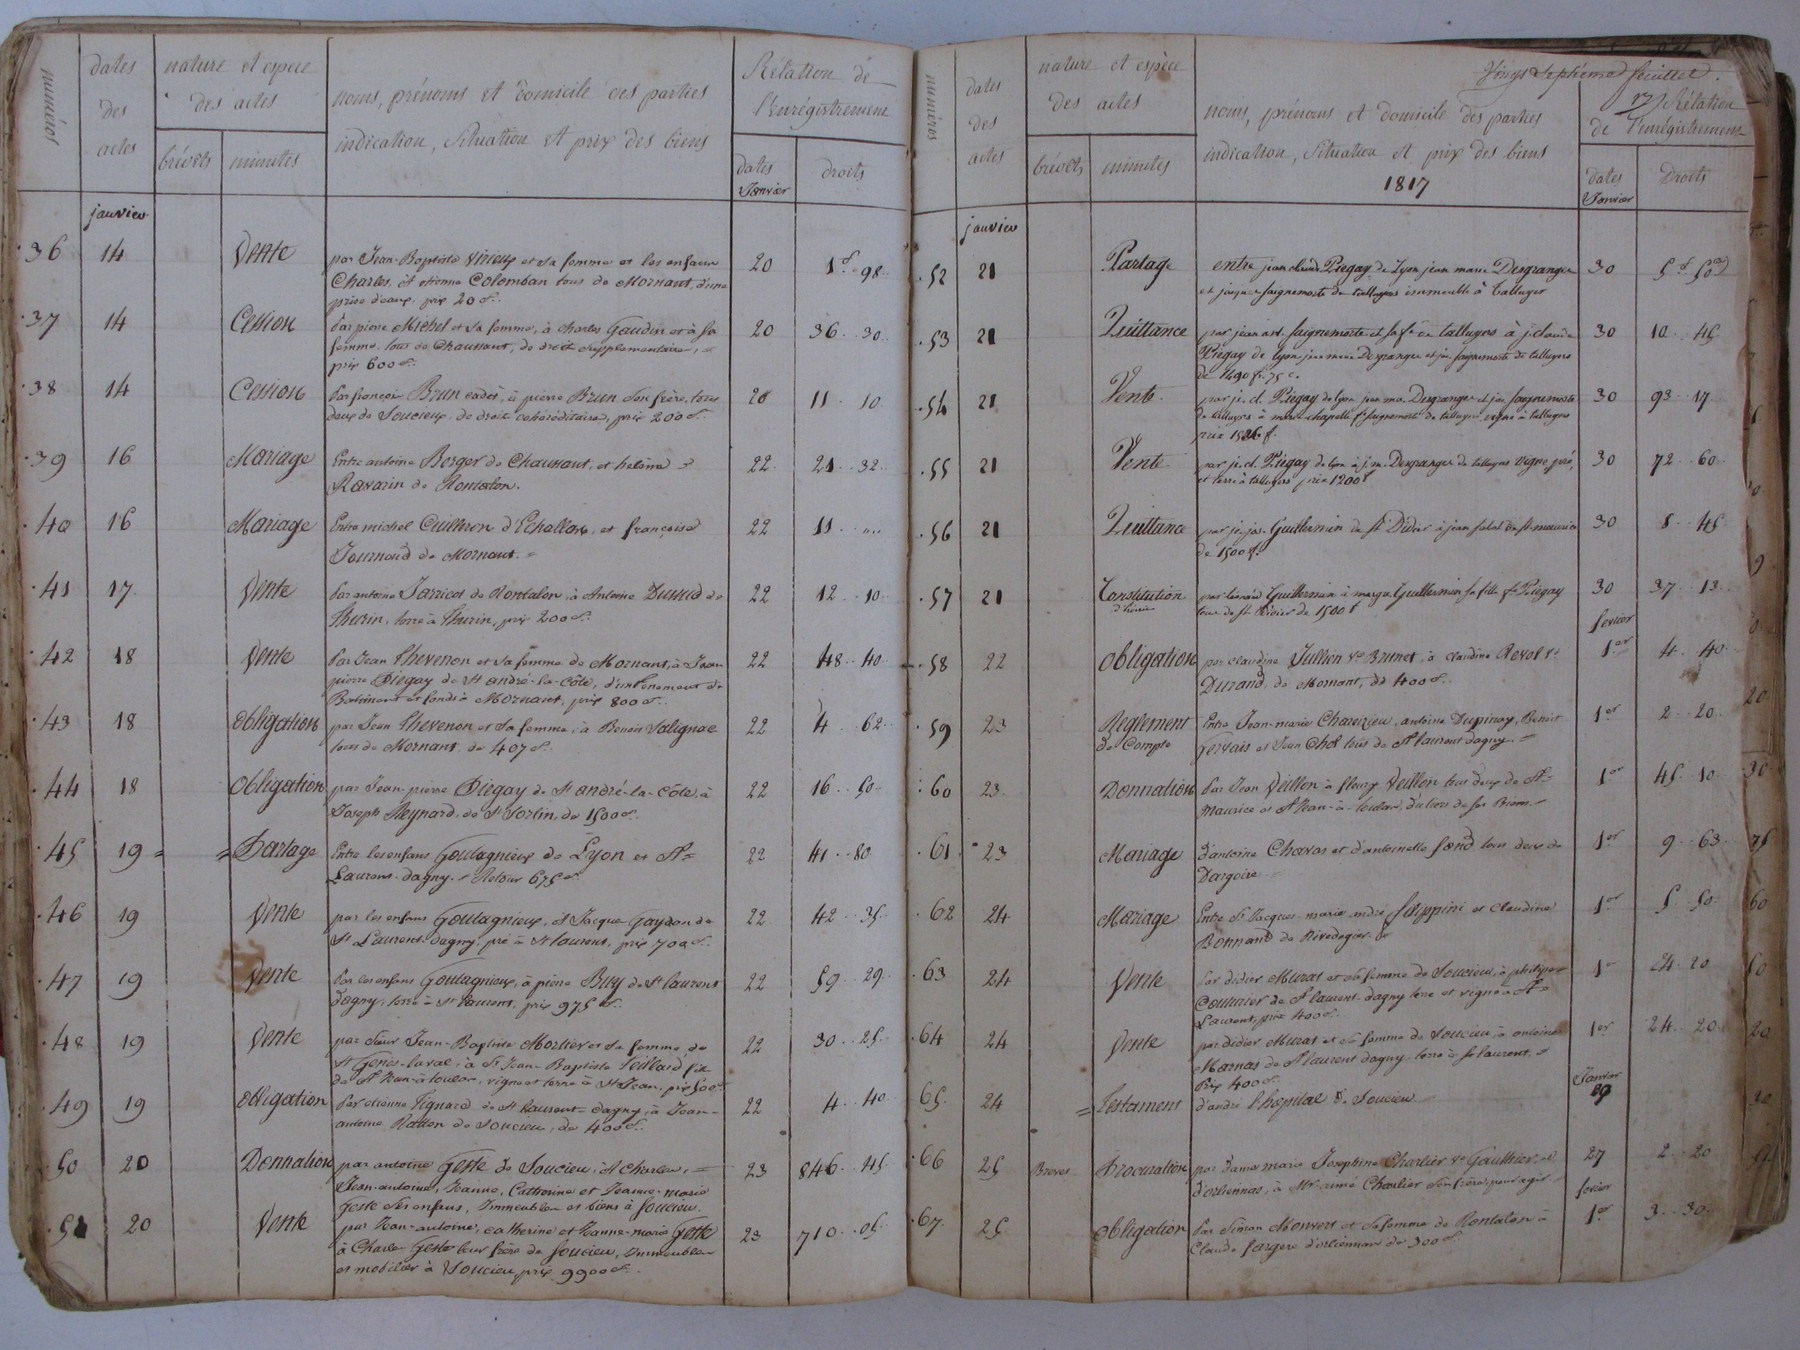 numéros
dates
des
actes
nature et espèce
des actes
brévets
minutes
noms, prénoms et domicile des parties
indication, Situation et prix des biens
Rélation de
l'Enrégistrement
dates
Janvier
droits
janvier
36 14 Vente par Jean-Baptiste et sa femme et les enfans 20 1f 98
Charles et étienne Colomban tous de Mornant, d'une
prise d'eaux, prix 20 f.
37 14 Cession Par pierre Michel et sa femme, à charles Gaudin et à sa 20 36 30
femme, tous de Chaussant, de droit supplementaires,
prix 600 f.
38 14 Cession Par françois Brun cadet, à pierre Brun son frère, tous 20 11 10
deux de Soucieux, de droits cohéréditaires, prix 200 f.
39 16 Mariage Entre antoine Berger de Chaussant, et helène 22 21 32
Ravarin de Rontalon.
40 16 Mariage Entre michel Cuilleron d'Echallas, et françoise 22 11 "
Journoud de Mornant.
41 17 Vente Par antoine Jarricot de Rontalon, à Antoine Dussud de 22 12 10
Thurin, terre à Thurin, prix 200 f.
42 18 Vente Par Jean Thevenon et sa femme de Mornant, à Jean 22 48 40
pierre Piegay de St andré-la-Côte, d'un tenement de
Batiment et fonds à Mornant, prix 800 f.
43 18 Obligation par Jean Thevenon et sa femme, à Benoit Salignac 22 4 62
tous de Mornant, de 407 f.
44 18 Obligation par Jean-pierre Piegay de St andré-la-Côte, à 22 16 50
Joseph Reynard, de St Sorlin, de 1500 f.
45 19 = = Partage Entre les enfans Goutagnieux de Lyon et St= 22 41 80
Laurent-dagny. = Retour 675 f.
46 19 Vente par les enfans Goutagnieux, à Jacque Gaydon de 22 42 35
St Laurent-dagny, pré à St laurent, prix 700 f.
47 19 Vente Par les enfans Goutagnieux, à pierre Buy de St laurent 22 59 29
dagny, terre à St Laurent, prix 975 f.
48 19 Vente par Sieur Jean-Baptiste Mortier et sa femme, de 22 30 25
St Genis-laval, à Sr Jean-Baptiste fils
de St Jean-à-toulas, vigne et terre à St Jean, prix 500 f
49 19 Obligation Par étienne Vignard de St Laurent-dagny, à Jean- 22 4 40
antoine Ratton de Soucieu, de 400 f.
50 20 Donnation par antoine Geste de Soucieu, à Charles, 23 846 45
Jean-antoine, Jeanne, Catherine et Jeanne-marie
Geste ses enfans, Immeubles et biens à Soucieu.
51 20 Vente par Jean-antoine, catherine et Jeanne-marie Geste 23 710 05
à Charles Geste leur frère de Soucieu, immeubles
et mobilier à Soucieu, prix 9900 f.
numéros
dates
des
actes
nature et espèce
des actes
brévets
minutes
Vingt Septième feuillet.
noms, prénoms et domicile des parties
indication, Situation et prix des biens
1817
27 Rélation
de l'enrégistrement
dates
Janvier
Droits
janvier
52 21 Partage entre jean claude Piegay de Lyon jean marie Desgranges 30 5f 50c
et jacques saignemorte de talluyers immeuble à talluyer
53 21 Quittance par jean ant. saignemorte et sa fe de talluyers à j. claude 30 10 45
Piegay de lyon jean marie Desgranges et jac. saignemorte de talluyers
de 1490 f. 75 c.
54 21 Vente par j. cl. Piegay de lyon jean ma. Desgranges et jac. saignemorte 30 93 17
de talluyers à chapelle fe saignemorte de talluyers vigne à talluyers
prix f.
55 21 Vente par j. cl. Piegay de lyon à j. m. Desgranges de talluyers vigne, pré, 30 72 60
et terre à talluyers prix 1200 f
56 21 Quittance par Guillermin de St Didier à jean de St maurice 30 8 45
de 1500 f.
57 21 Constitution par Guillermin à Guillermin sa fille fe Piegay 30 37 13
tous de St Didier de 1500 f
fevrier
58 22 Obligation par claudine Jullien ve Brunet, à claudine Revol ve 1er 4 40
Durand, de Mornant, de 400 f.
59 23 Règlement Entre Jean-marie antoine Dupinay, Benoit 1er 2 20
de Compte Gervais et Jean Chol tous de St laurent dagny. =
60 23 Donnation Par Jean Veillon à fleury Veillon tous deux de St= 1er 45 10
Maurice et St Jean-à-toulas, du tiers de ses Biens.
61 23 Mariage d'antoine Chavas et d'antoinette fond tous deux de 1er 9 63
Dargoire
62 24 Mariage Entre Sr Jacques-marie Seippini et Claudine 1er 5 50
Bonnand de Rivedegier.
63 24 Vente Par didier Murat et sa femme de Soucieu, à philipe 1er 24 20
Couturier de St laurent-dagny terre et vigne à St=
Laurent, prix 400 f.
64 24 Vente par didier Murat et sa femme de Soucieu, à antoine 1er 24 20
Marnas de St laurent dagny, terre à St laurent,
Prix 400 f.
Janvier
65 24 = Testament d'andré l'hopital de Soucieu 29
66 25 Brevet Procuration par Dame marie Josephine Charlier ve Gaulthier 27 2 20
d'orliennas, à Mr aimé Charlier son frère pour agir
fevrier
67 25 Obligation Par Simon Monvert et sa femme de Rontalon à 1er 3 30
Claude fargere d'orliennas de 300 f.